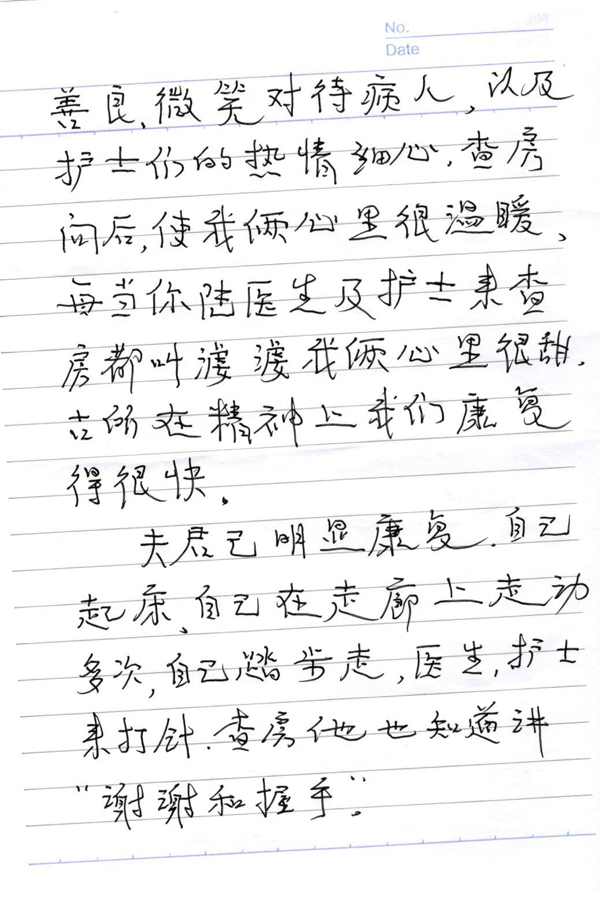 No.
Date
善良,微笑对待病人,以及
护士们的热情细心,查房
问后,使我俩心里很温暖、
每当你陆医生及护士来查
房都叫婆婆我俩心里很甜,
所在精神上我们康复
得很快。
夫君已明显康复,自己
起床,自己在走廊上走动
多次,自己踏步走,医生,护士
来打针、查房他也知道讲
“谢谢和握手”。